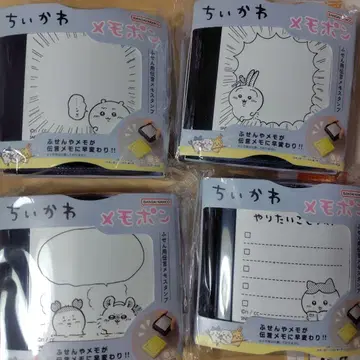 ちいかわ
メモポン
ふせん用伝言メモスタンプ
ふせんやメモが
伝言メモに早変わり!!
ちいかわ
メモポン
ふせん用伝言メモスタンプ
ふせんやメモが
伝言メモに早変わり!!
ちいかわ
メモポン
ふせん用伝言メモスタンプ
ふせんやメモが
伝言メモに早変わり!!
ちいかわ
メモポン
やりたいこと
ふせん用伝言メモスタンプ
ふせんやメモが
伝言メモに早変わり!!